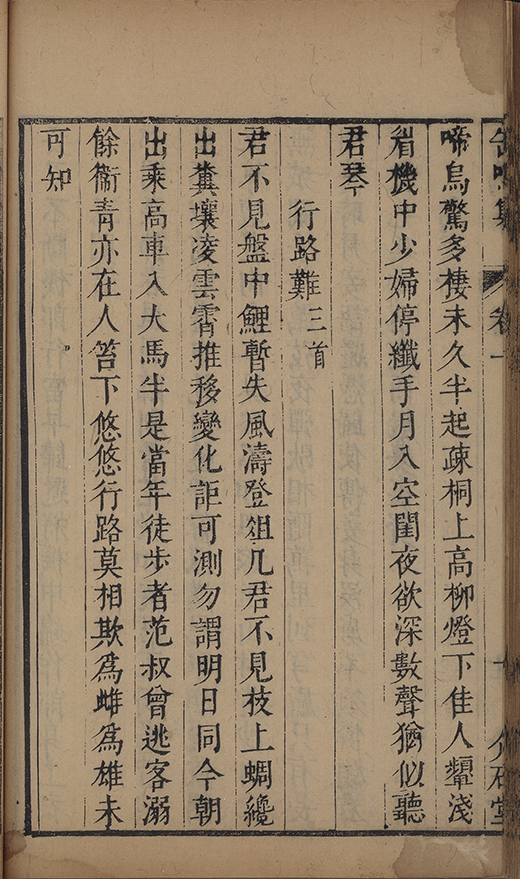 缶鳴集 卷一 十 介石堂
啼烏驚多棲未久半起疎桐上高柳燈下佳人顰淺
眉機中少婦停纖手月入空閨夜欲深數聲猶似聽
君琴
行路難三首
君不見盤中鯉暫失風濤登俎几君不見枝上蜩纔
出糞壤凌雲霄推移變化詎可測勿謂明日同今朝
出乘高車入大馬半是當年徒步者范叔曾逃客溺
餘衞青亦在人笞下悠悠行路莫相欺爲雌爲雄未
可知